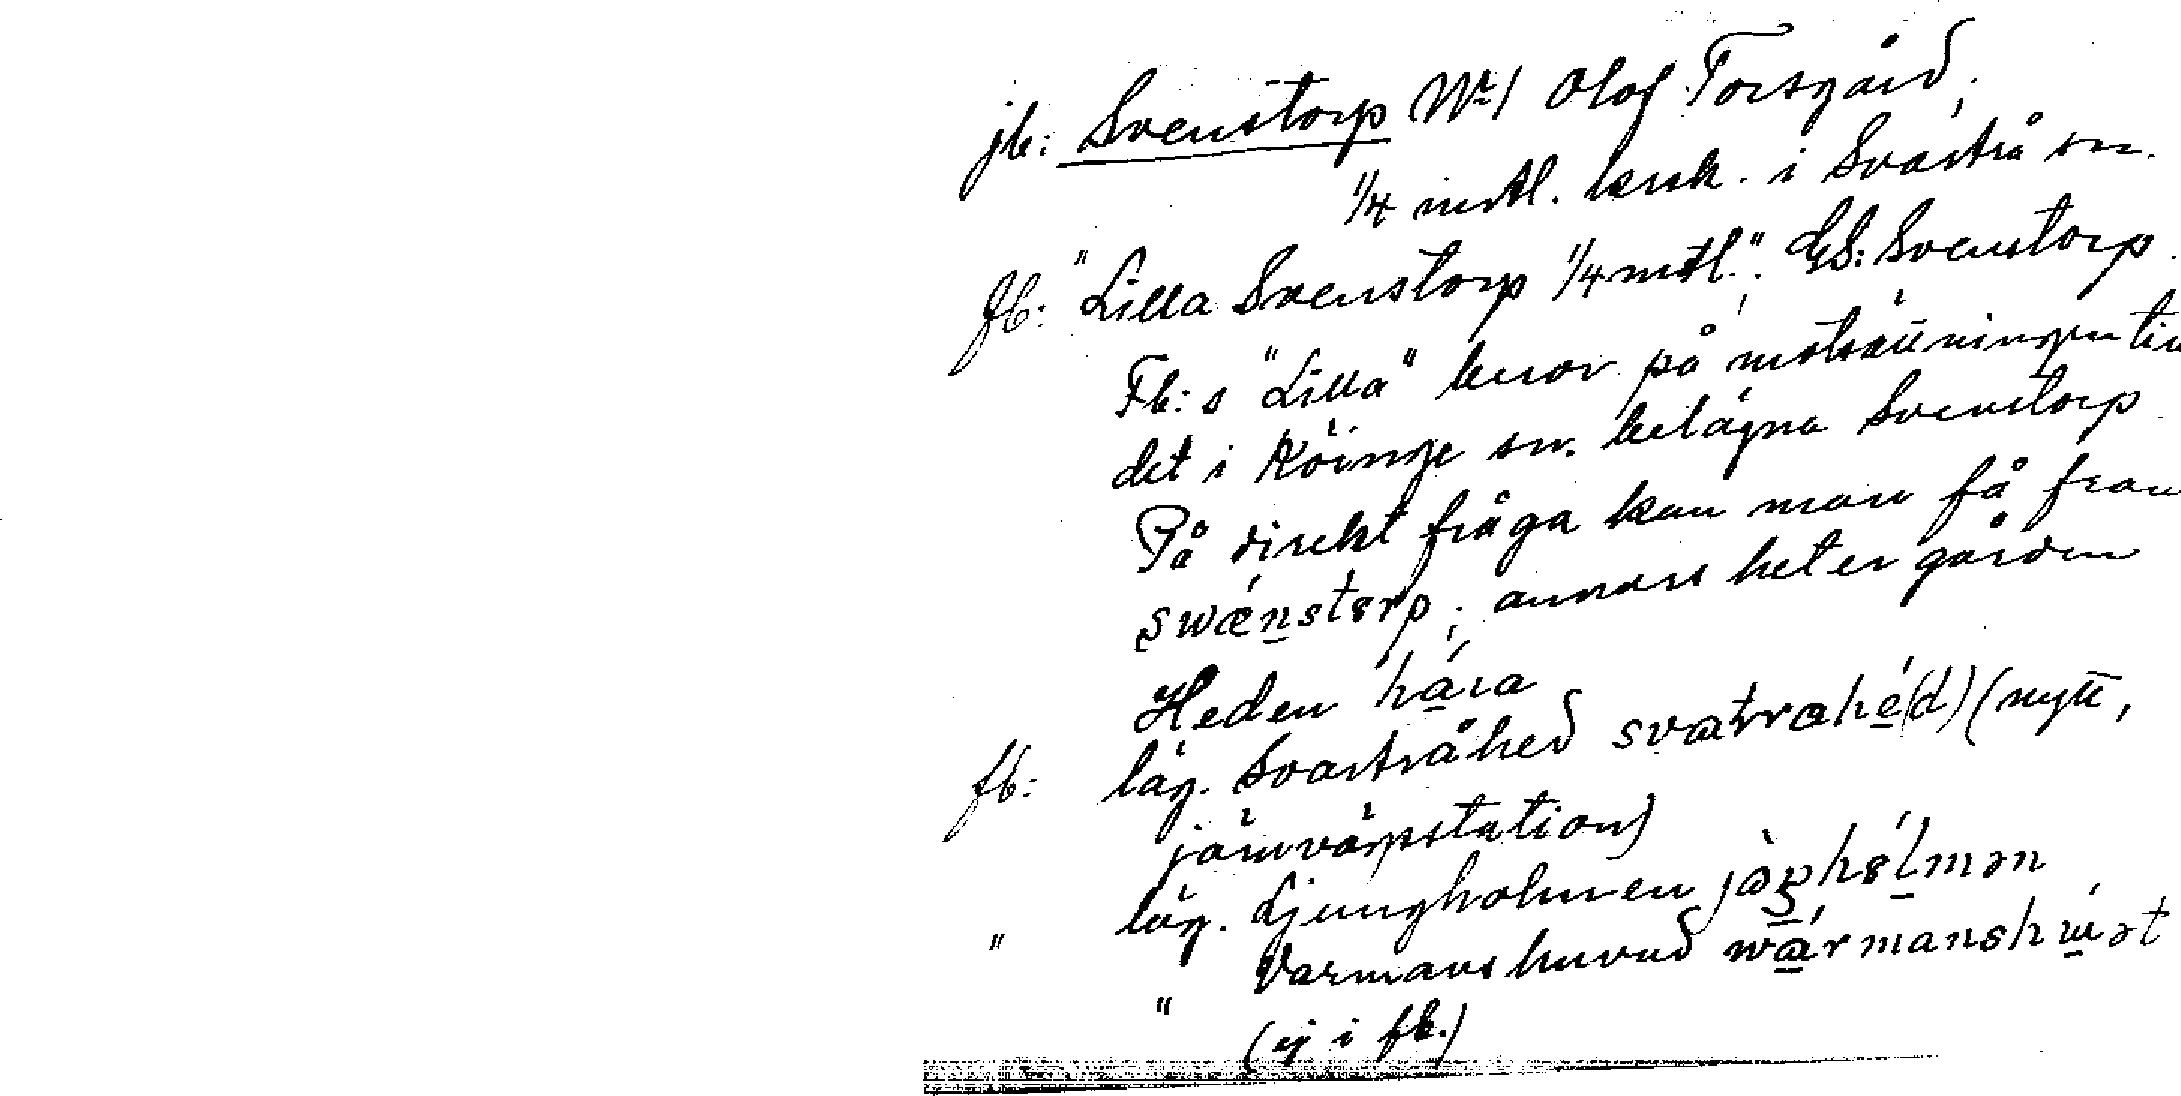 jb: Svenstorp Nr 1 Olof Torsgård,
1/4 mtl. krsk. i Svartrå sn.
fb: "Lilla Svenstorp 1/4 mtl."; GS: Svenstorp.
Fb:s "Lilla" beror på motsättningen till
det i Köinge sn. belägna Svenstorp
På direkt fråga kan man få fram
swǽnstorp; annars heter gården
Heden
fb: läg. Svartråhed svatrahé(d) (nytt,
järnvägsstation)
" läg. Ljungholmen
" Varmanshuvud
(ej i fb.)